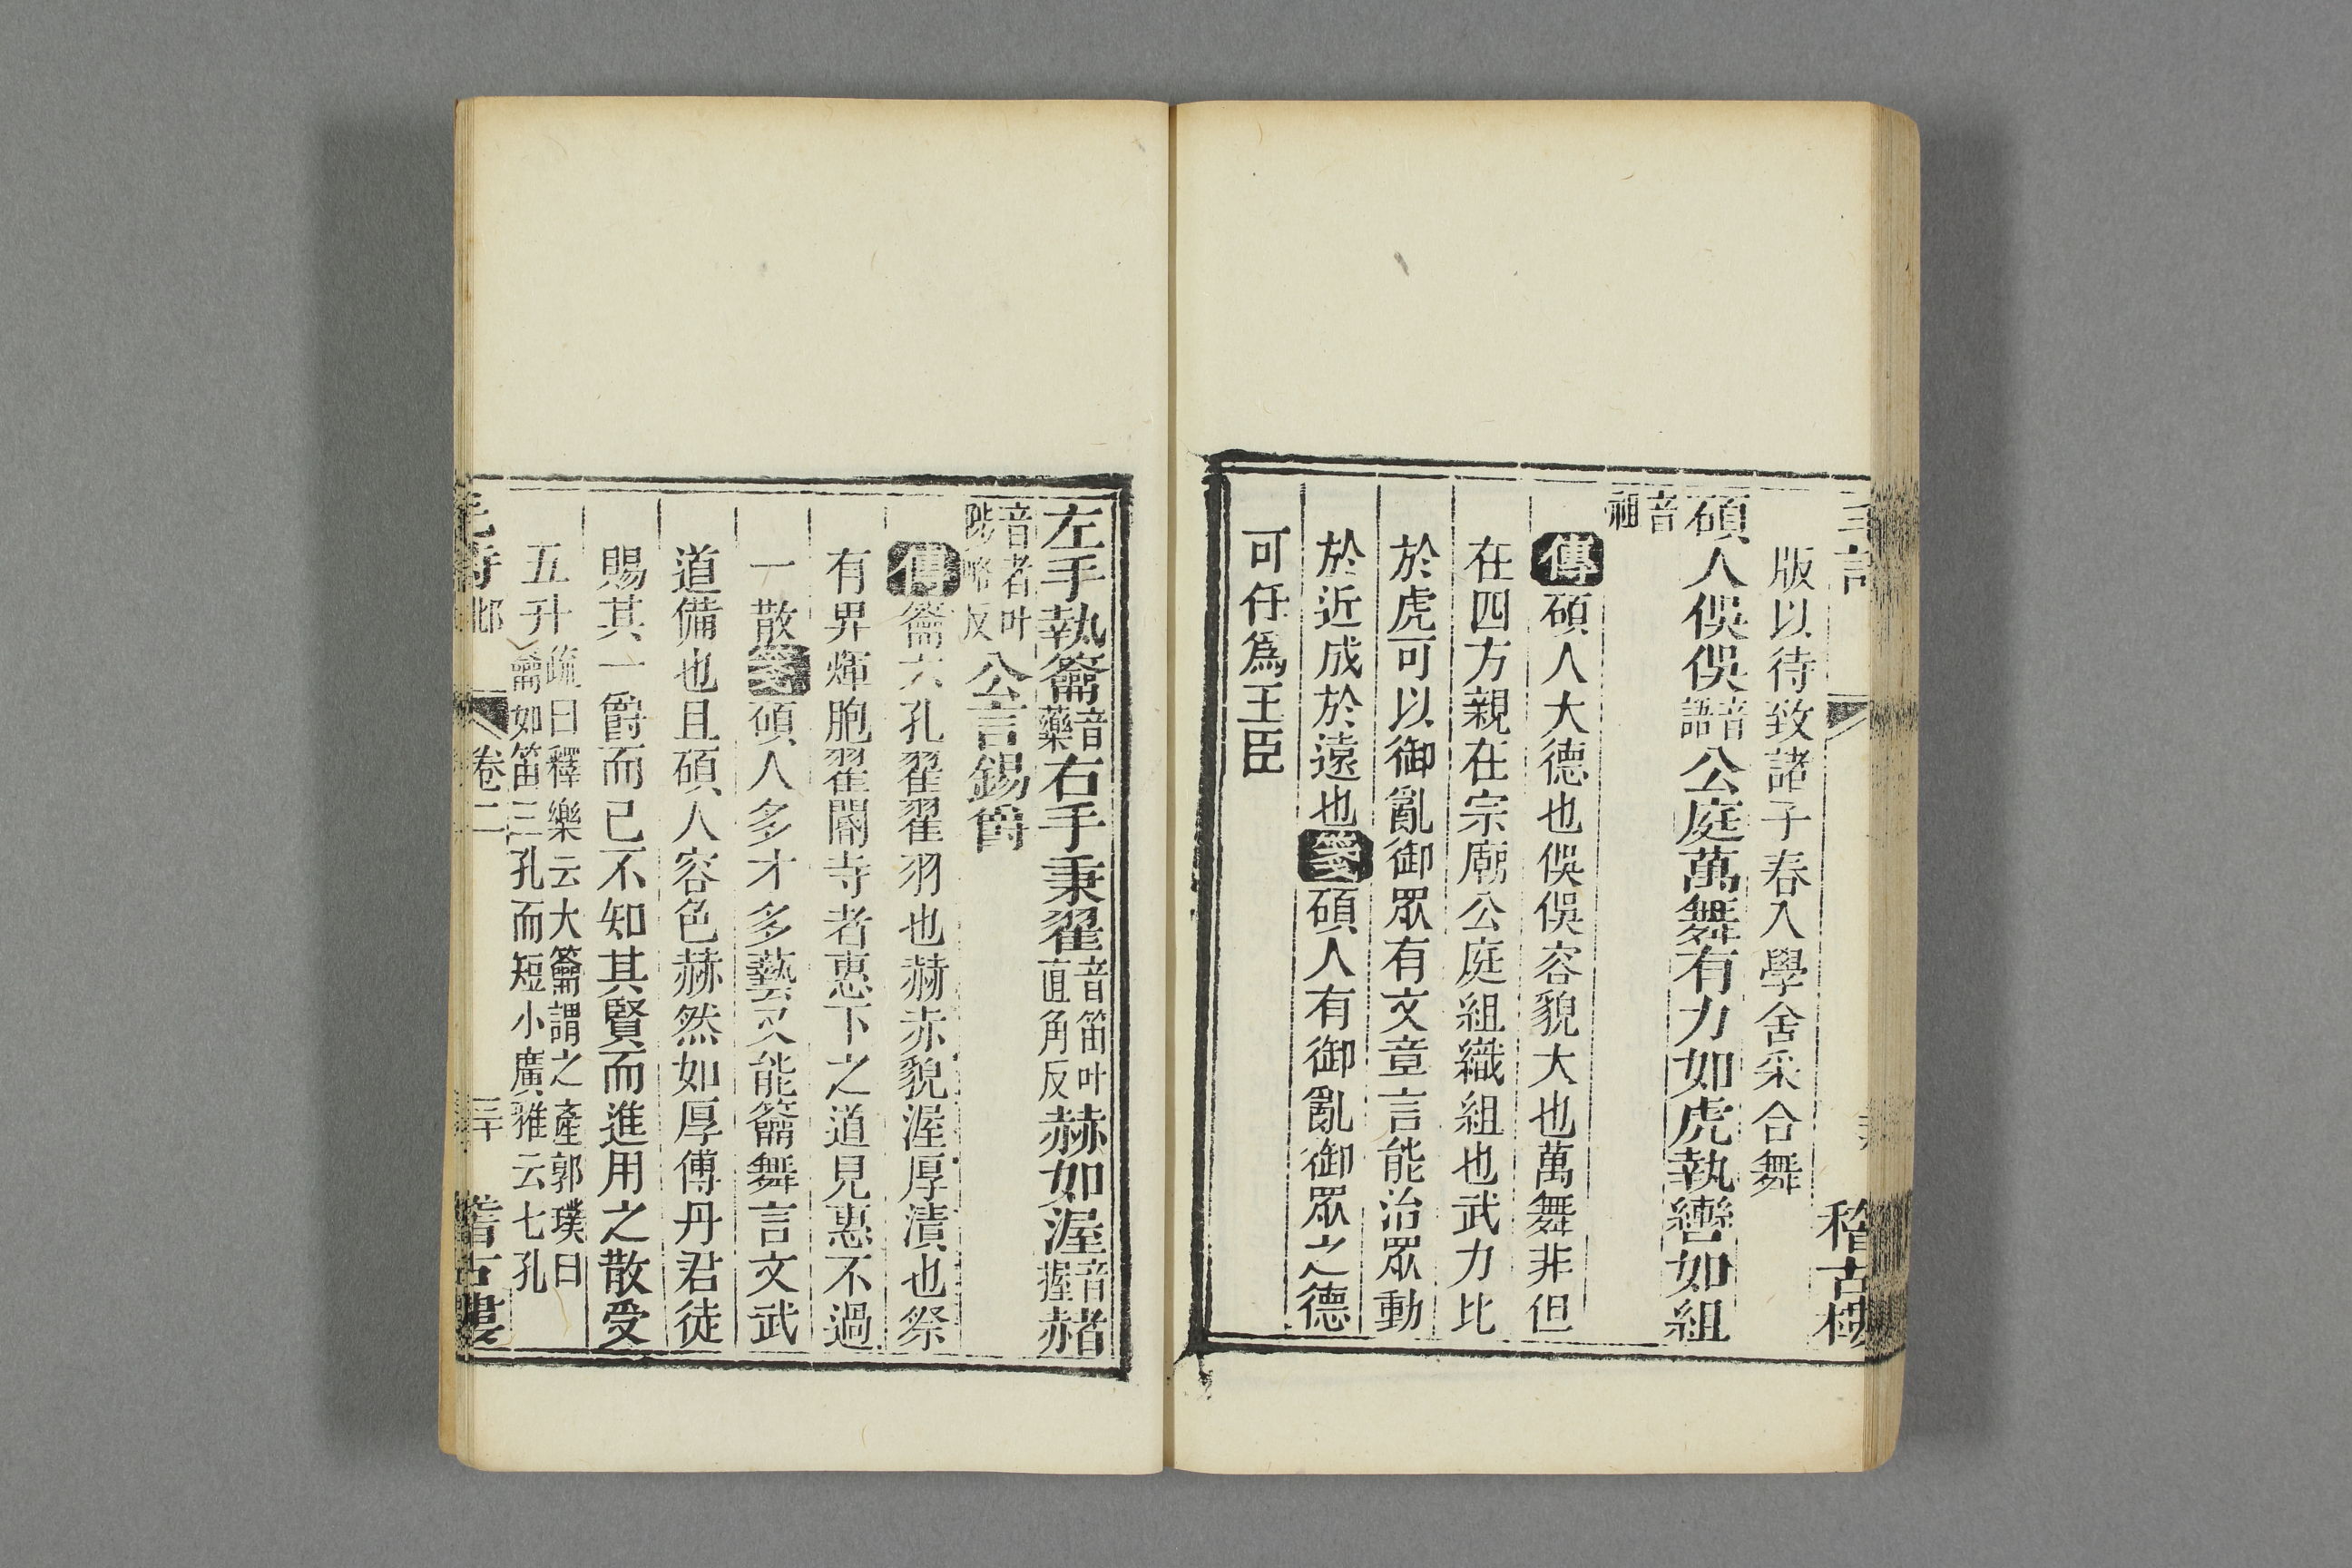 稽古樓
版以待致諸子春入學舍采合舞
碩人俁俁音語公庭萬舞有力如虎執轡如組
音祖
傳碩人大德也俁俁容貌大也萬舞非但
在四方親在宗廟公庭組織組也武力比
於虎可以御亂御眾有文章言能治眾動
於近成於遠也箋碩人有御亂御眾之德
可任爲王臣
左手執籥音藥右手秉翟音笛叶直角反赫如渥音握赭
音者叶陟略反公言錫爵
傳籥六孔翟翟羽也赫赤貌渥厚漬也祭
有畀煇胞翟閽寺者惠下之道見惠不過
一散箋碩人多才多藝又能籥舞言文武
道備也且碩人容色赫然如厚傅丹君徒
賜其一爵而已不知其賢而進用之散受
五升疏曰釋樂云大籥謂之產郭璞曰籥如笛三孔而短小廣雅云七孔
毛詩邶 卷二 三十 稽古樓